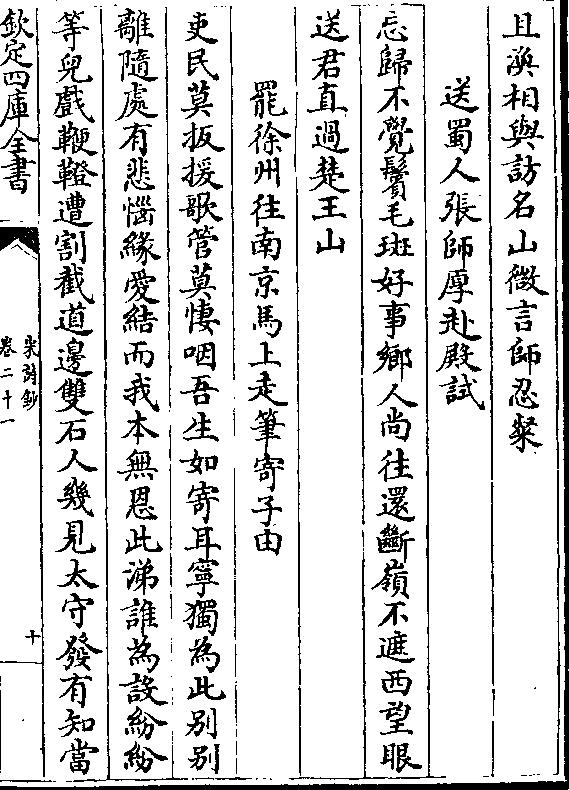 且渙相與訪名山微言師忍粲
送蜀人張師厚赴殿試
忘歸不覺鬢毛斑好事鄉人尚往還斷嶺不遮西望眼
送君直過楚王山
罷徐州往南京馬上走筆寄子由
吏民莫扳援歌管莫悽咽吾生如寄耳寧獨為此别别
離隨處有悲惱緣愛結而我本無恩此涕誰為設紛紛
等兒戲鞭鐙遭割截道邊雙石人幾見太守發有知當
欽定四庫全書
宋詩鈔
卷二十一
十